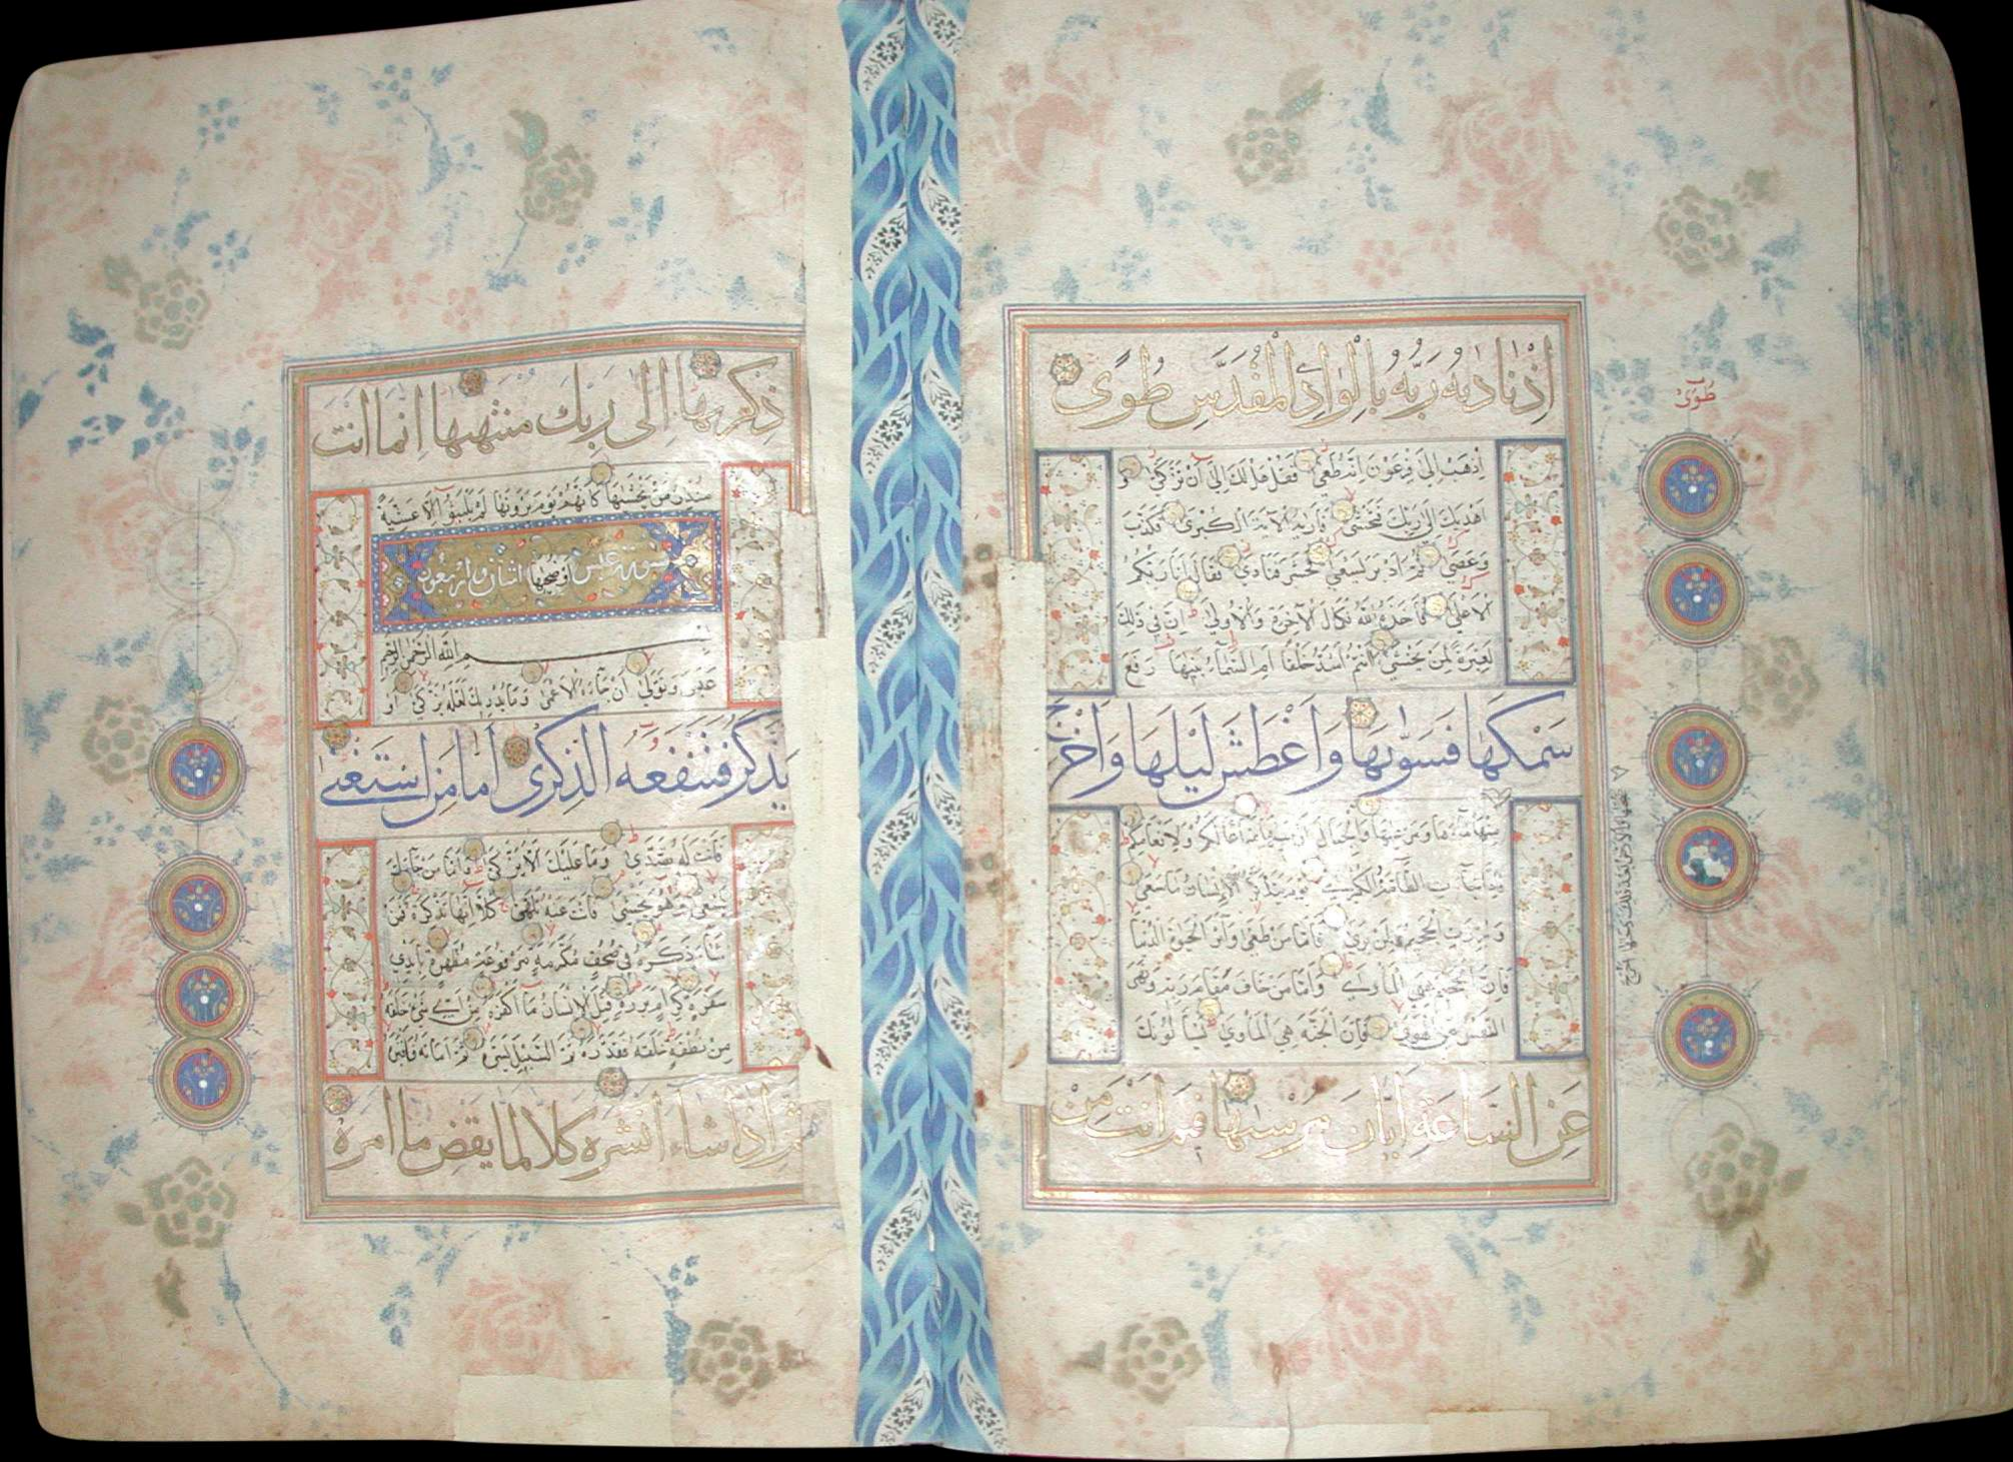 اذ ناداه ربه بالواد المقدس طوى
اذهب الى فرعون انه طغى فقل هل لك الى ان تزكى و
اهديك الى ربك فتخشى فاريه الآية الكبرى فكذب
وعصى ثم ادبر يسعى فحشر فنادى فقال انا ربكم
الاعلى فاخذه الله نكال الآخرة والاولى ان فى ذلك
لعبرة لمن يخشى ءانتم اشد خلقا ام السماء بنيها رفع
سمكها فسويها واغطش ليلها واخرج
منها ماءها ومرعيها والجبال ارسيها متاعا لكم ولانعامكم
فاذا جاءت الطامة الكبرى يوم يتذكر الإنسان ما سعى
وبرزت الجحيم لمن يرى فاما من طغى وآثر الحيوة الدنيا
فان الجحيم هى المأوى واما من خاف مقام ربه ونهى
النفس عن الهوى فان الجنة هى المأوى يسألونك
عن الساعة ايان مرسيها فيم انت من
طوى
ذكريها الى ربك منتهيها انما انت
منذر من يخشيها كانهم يوم يرونها لم يلبثوا الا عشية
سورة عبس او ضحيها اثنان واربعون
بسم الله الرحمن الرحيم
عبس وتولى ان جاءه الاعمى وما يدريك لعله يزكى او
يذكر فتنفعه الذكرى اما من استغنى
فانت له تصدى وما عليك الا يزكى واما من جاءك
يسعى وهو يخشى فانت عنه تلهى كلا انها تذكرة فمن
شاء ذكره فى صحف مكرمة مرفوعة مطهرة بايدى
سفرة كرام بررة قتل الإنسان ما اكفره من اى شىء خلقه
من نطفة خلقه فقدره ثم السبيل يسره ثم اماته فاقبره
ثم اذا شاء انشره كلا لما يقض ما امره